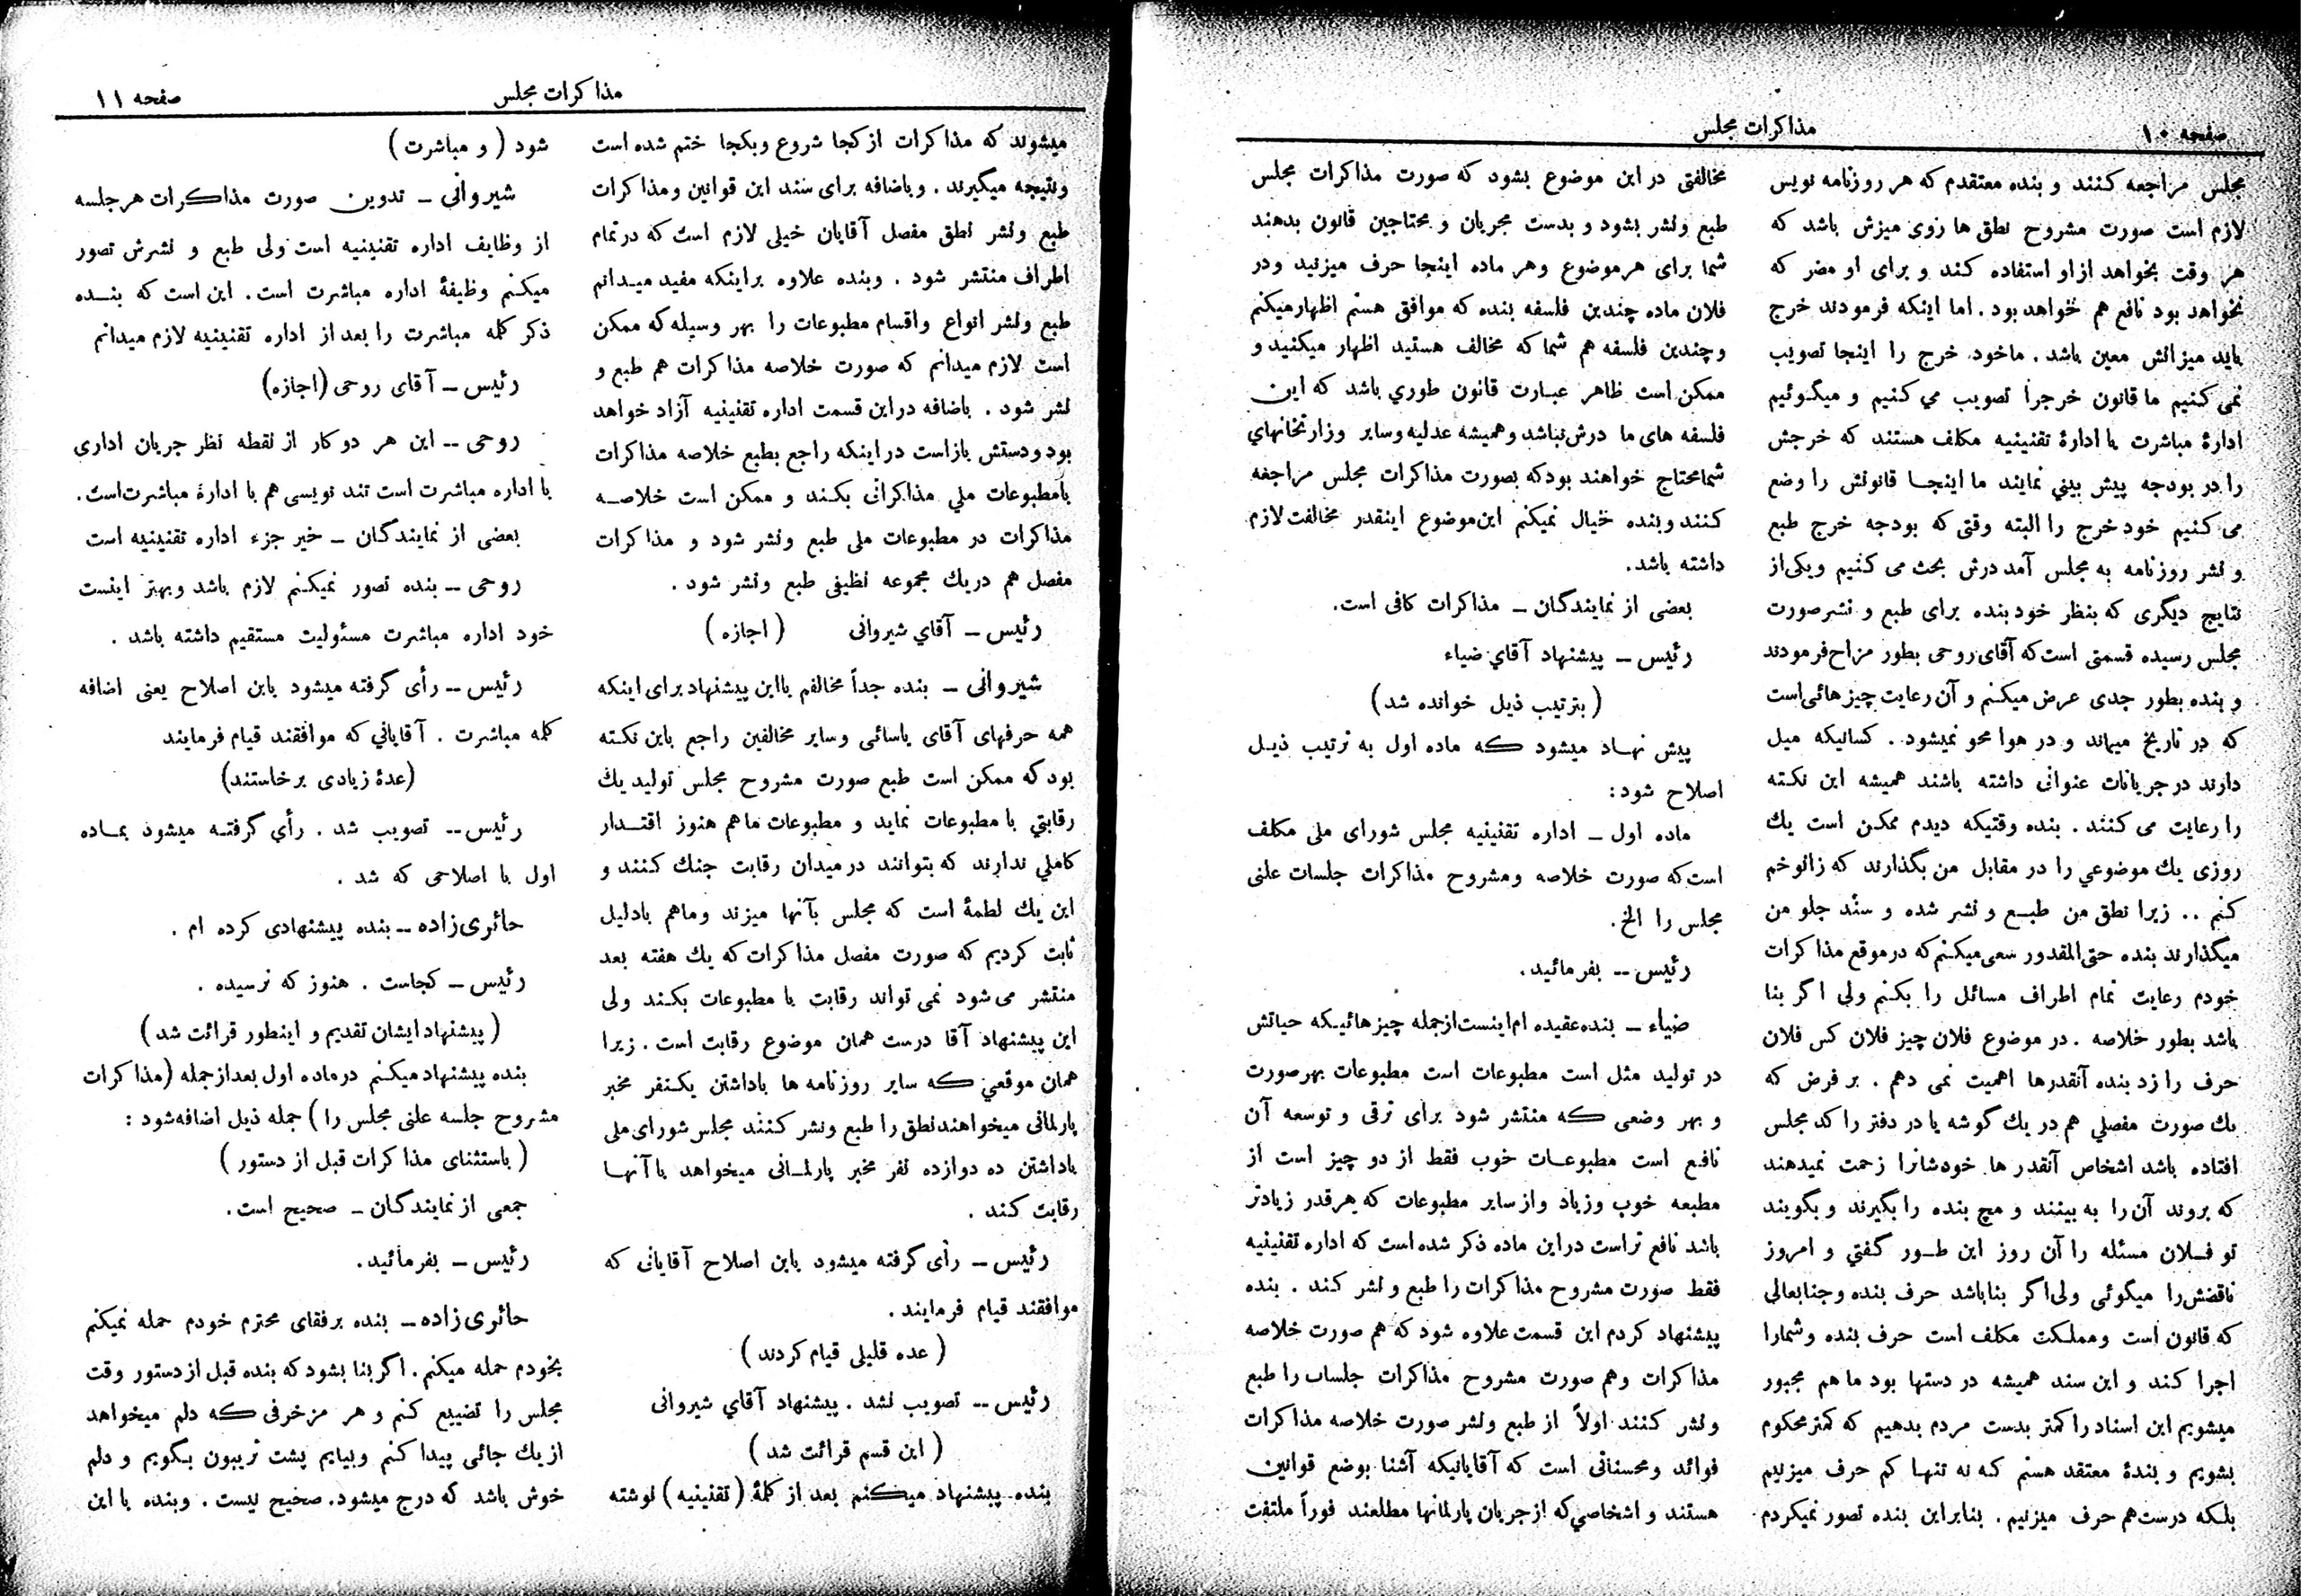 صفحه ۱۰
مذاکرات مجلس
مجلس مراجعه کنند و بنده معتقدم که هر روزنامه نویس
لازم است صورت مشروح نطق ها روی میزش باشد که
هر وقت بخواهد از او استفاده کند و برای او مضر که
نخواهد بود نافع هم خواهد بود . اما اینکه فرمودند خرج
باید میزانش معین باشد . ما خود خرج را اینجا تصویب
نمی کنیم ما قانون خرجرا تصویب می کنیم و میگوئیم
ادارهٔ مباشرت یا ادارهٔ تقنینیه مکلف هستند که خرجش
را در بودجه پیش بینی نمایند ما اینجا قانونش را وضع
می کنیم خود خرج را البته وقتی که بودجه خرج طبع
و نشر روزنامه به مجلس آمد درش بحث می کنیم ویکی از
نتایج دیگری که بنظر خود بنده برای طبع و نشر صورت
مجلس رسیده قسمتی است که آقای روحی بطور مزاح فرمودند
و بنده بطور جدی عرض میکنم و آن رعایت چیز هائی است
که در تاریخ میماند و در هوا محو نمیشود . کسانیکه میل
دارند در جریانات عنوانی داشته باشند همیشه این نکته
را رعایت می کنند . بنده وقتیکه دیدم ممکن است یك
روزی یك موضوعی را در مقابل من بگذارند که زانو خم
کنم .. زیرا نطق من طبع و نشر شده و سند جلو من
میگذارند بنده حتی المقدور سعی میکنم که در موقع مذاکرات
خودم رعایت تمام اطراف مسائل را بکنم ولی اگر بنا
باشد بطور خلاصه . در موضوع فلان چیز فلان کس فلان
حرف را زد بنده آنقدرها اهمیت نمی دهم . بر فرض که
یك صورت مفصلی هم در یك گوشه یا در دفتر را کد مجلس
افتاده باشد اشخاص آنقدر ها خودشانرا زحمت نمیدهند
که بروند آن را به بینند و مچ بنده را بگیرند و بگویند
تو فلان مسئله را آن روز این طور گفتی و امروز
ناقضش را میگوئی ولی اگر بنا باشد حرف بنده و جنابعالی
که قانون است و مملکت مکلف است حرف بنده و شمارا
اجرا کند و این سند همیشه در دستها بود ما هم مجبور
میشویم این اسناد را کمتر بدست مردم بدهیم که کمتر محکوم
بشویم و بندۀ معتقد هستم که نه تنها کم حرف میزنیم
بلکه درست هم حرف میزنیم . بنابراین بنده تصور نمیکردم
مخالفتی در این موضوع بشود که صورت مذاکرات مجلس
طبع و نشر بشود و بدست مجریان و محتاجین قانون بدهند
شما برای هر موضوع و هر ماده اینجا حرف میزنید و در
فلان ماده چندین فلسفه بنده که موافق هستم اظهار میکنم
و چندین فلسفه هم شما که مخالف هستید اظهار میکنید و
ممکن است ظاهر عبارت قانون طوري باشد که این
فلسفه های ما درش نباشد و همیشه عدلیه و سایر وزارتخانهای
شما محتاج خواهند بود که بصورت مذاکرات مجلس مراجعه
کنند و بنده خیال نمیکنم این موضوع اینقدر مخالفت لازم
داشته باشد.
بعضی از نمایندگان – مذاکرات کافی است.
رئیس – پیشنهاد آقاي ضیاء
(بترتیب ذیل خوانده شد)
پیش نهاد میشود که ماده اول به ترتیب ذیل
اصلاح شود:
ماده اول – اداره تقنینیه مجلس شورای ملی مکلف
است که صورت خلاصه و مشروح مذاکرات جلسات علنی
مجلس را الخ.
رئیس – بفرمائید.
ضیاء – بنده عقیده ام اینست از جمله چیز هائیکه حیاتش
در تولید مثل است مطبوعات است مطبوعات بهر صورت
و بهر وضعی که منتشر شود برای ترقی و توسعه آن
نافع است مطبوعات خوب فقط از دو چیز است از
مطبعه خوب و زیاد و از سایر مطبوعات که هر قدر زیادتر
باشد نافع تر است در این ماده ذکر شده است که اداره تقنینیه
فقط صورت مشروح مذاکرات را طبع و نشر کند . بنده
پیشنهاد کردم این قسمت علاوه شود که هم صورت خلاصه
مذاکرات و هم صورت مشروح مذاکرات جلسات را طبع
و نشر کنند اولاً از طبع و نشر صورت خلاصه مذاکرات
فوائد و محسناتی است که آقایانیکه آشنا بوضع قوانین
هستند و اشخاصي که از جریان پارلمانها مطلعند فوراً ملتفت
مذاکرات مجلس
صفحه ۱۱
میشوند که مذاکرات از کجا شروع و بکجا ختم شده است
و نتیجه میگیرند . و باضافه برای سند این قوانین و مذاکرات
طبع و نشر نطق مفصل آقایان خیلی لازم است که در تمام
اطراف منتشر شود . و بنده علاوه بر اینکه مفید میدانم
طبع و نشر انواع و اقسام مطبوعات را بهر وسیله که ممکن
است لازم میدانم که صورت خلاصه مذاکرات هم طبع و
نشر شود . باضافه در این قسمت اداره تقنینیه آزاد خواهد
بود و دستش باز است در اینکه راجع بطبع خلاصه مذاکرات
بامطبوعات ملي مذاکراتی بکند و ممکن است خلاصه
مذاکرات در مطبوعات ملی طبع و نشر شود و مذاکرات
مفصل هم در یك مجموعه نظیفی طبع و نشر شود .
رئیس – آقاي شیروانی (اجازه)
شیروانی – بنده جداً مخالفم با این پیشنهاد برای اینکه
همه حرفهای آقای یاسائی و سایر مخالفین راجع باین نکته
بود که ممکن است طبع صورت مشروح مجلس تولید یك
رقابتي با مطبوعات نماید و مطبوعات ما هم هنوز اقتدار
کاملي ندارند که بتوانند در میدان رقابت جنك کنند و
این یك لطمهٔ است که مجلس بآنها میزند و ما هم بادلیل
ثابت کردیم که صورت مفصل مذاکرات که یك هفته بعد
منتشر می شود نمی تواند رقابت با مطبوعات بکند ولی
این پیشنهاد آقا درست همان موضوع رقابت است . زیرا
همان موقعي که سایر روزنامه ها باداشتن یکنفر مخبر
پارلمانی میخواهند نطق را طبع و نشر کنند مجلس شورای ملی
باداشتن ده دوازده نفر مخبر پارلمانی میخواهد با آنها
رقابت کند .
رئیس – رأی گرفته میشود باین اصلاح آقایانی که
موافقند قیام فرمایند .
(عده قلیلی قیام کردند)
رئیس – تصویب نشد . پیشنهاد آقاي شیروانی
(این قسم قرائت شد)
بنده پیشنهاد میکنم بعد از کلمۀ (تقنینیه) نوشته
شود (و مباشرت)
شیروانی – تدوین صورت مذاکرات هر جلسه
از وظایف اداره تقنینیه است ولی طبع و نشرش تصور
میکنم وظیفۀ اداره مباشرت است. این است که بنده
ذکر کلمه مباشرت را بعد از اداره تقنینیه لازم میدانم
رئیس – آقای روحی (اجازه)
روحی – این هر دو کار از نقطه نظر جریان اداری
با اداره مباشرت است تند نویسی هم با ادارۀ مباشرت است.
بعضی از نمایندگان – خیر جزء اداره تقنینیه است
روحی – بنده تصور نمیکنم لازم باشد و بهتر اینست
خود اداره مباشرت مسئولیت مستقیم داشته باشد .
رئیس – رأی گرفته میشود باین اصلاح یعنی اضافه
کلمه مباشرت . آقایاني که موافقند قیام فرمایند
(عدۀ زیادی برخاستند)
رئیس – تصویب شد . رأي گرفته میشود بماده
اول با اصلاحی که شد .
حائری زاده – بنده پیشنهادی کرده ام .
رئیس – کجاست . هنوز که نرسیده .
(پیشنهاد ایشان تقدیم و اینطور قرائت شد)
بنده پیشنهاد میکنم در ماده اول بعد از جمله (مذاکرات
مشروح جلسه علنی مجلس را) جمله ذیل اضافه شود :
(باستثنای مذاکرات قبل از دستور)
جمعی از نمایندگان – صحیح است.
رئیس – بفرمائید.
حائری زاده – بنده برفقای محترم خودم حمله نمیکنم
بخودم حمله میکنم . اگر بنا بشود که بنده قبل از دستور وقت
مجلس را تضییع کنم و هر مزخرفی که دلم میخواهد
از یك جائی پیدا کنم و بیایم پشت تریبون بگویم و دلم
خوش باشد که درج میشود. صحیح نیست . و بنده با این